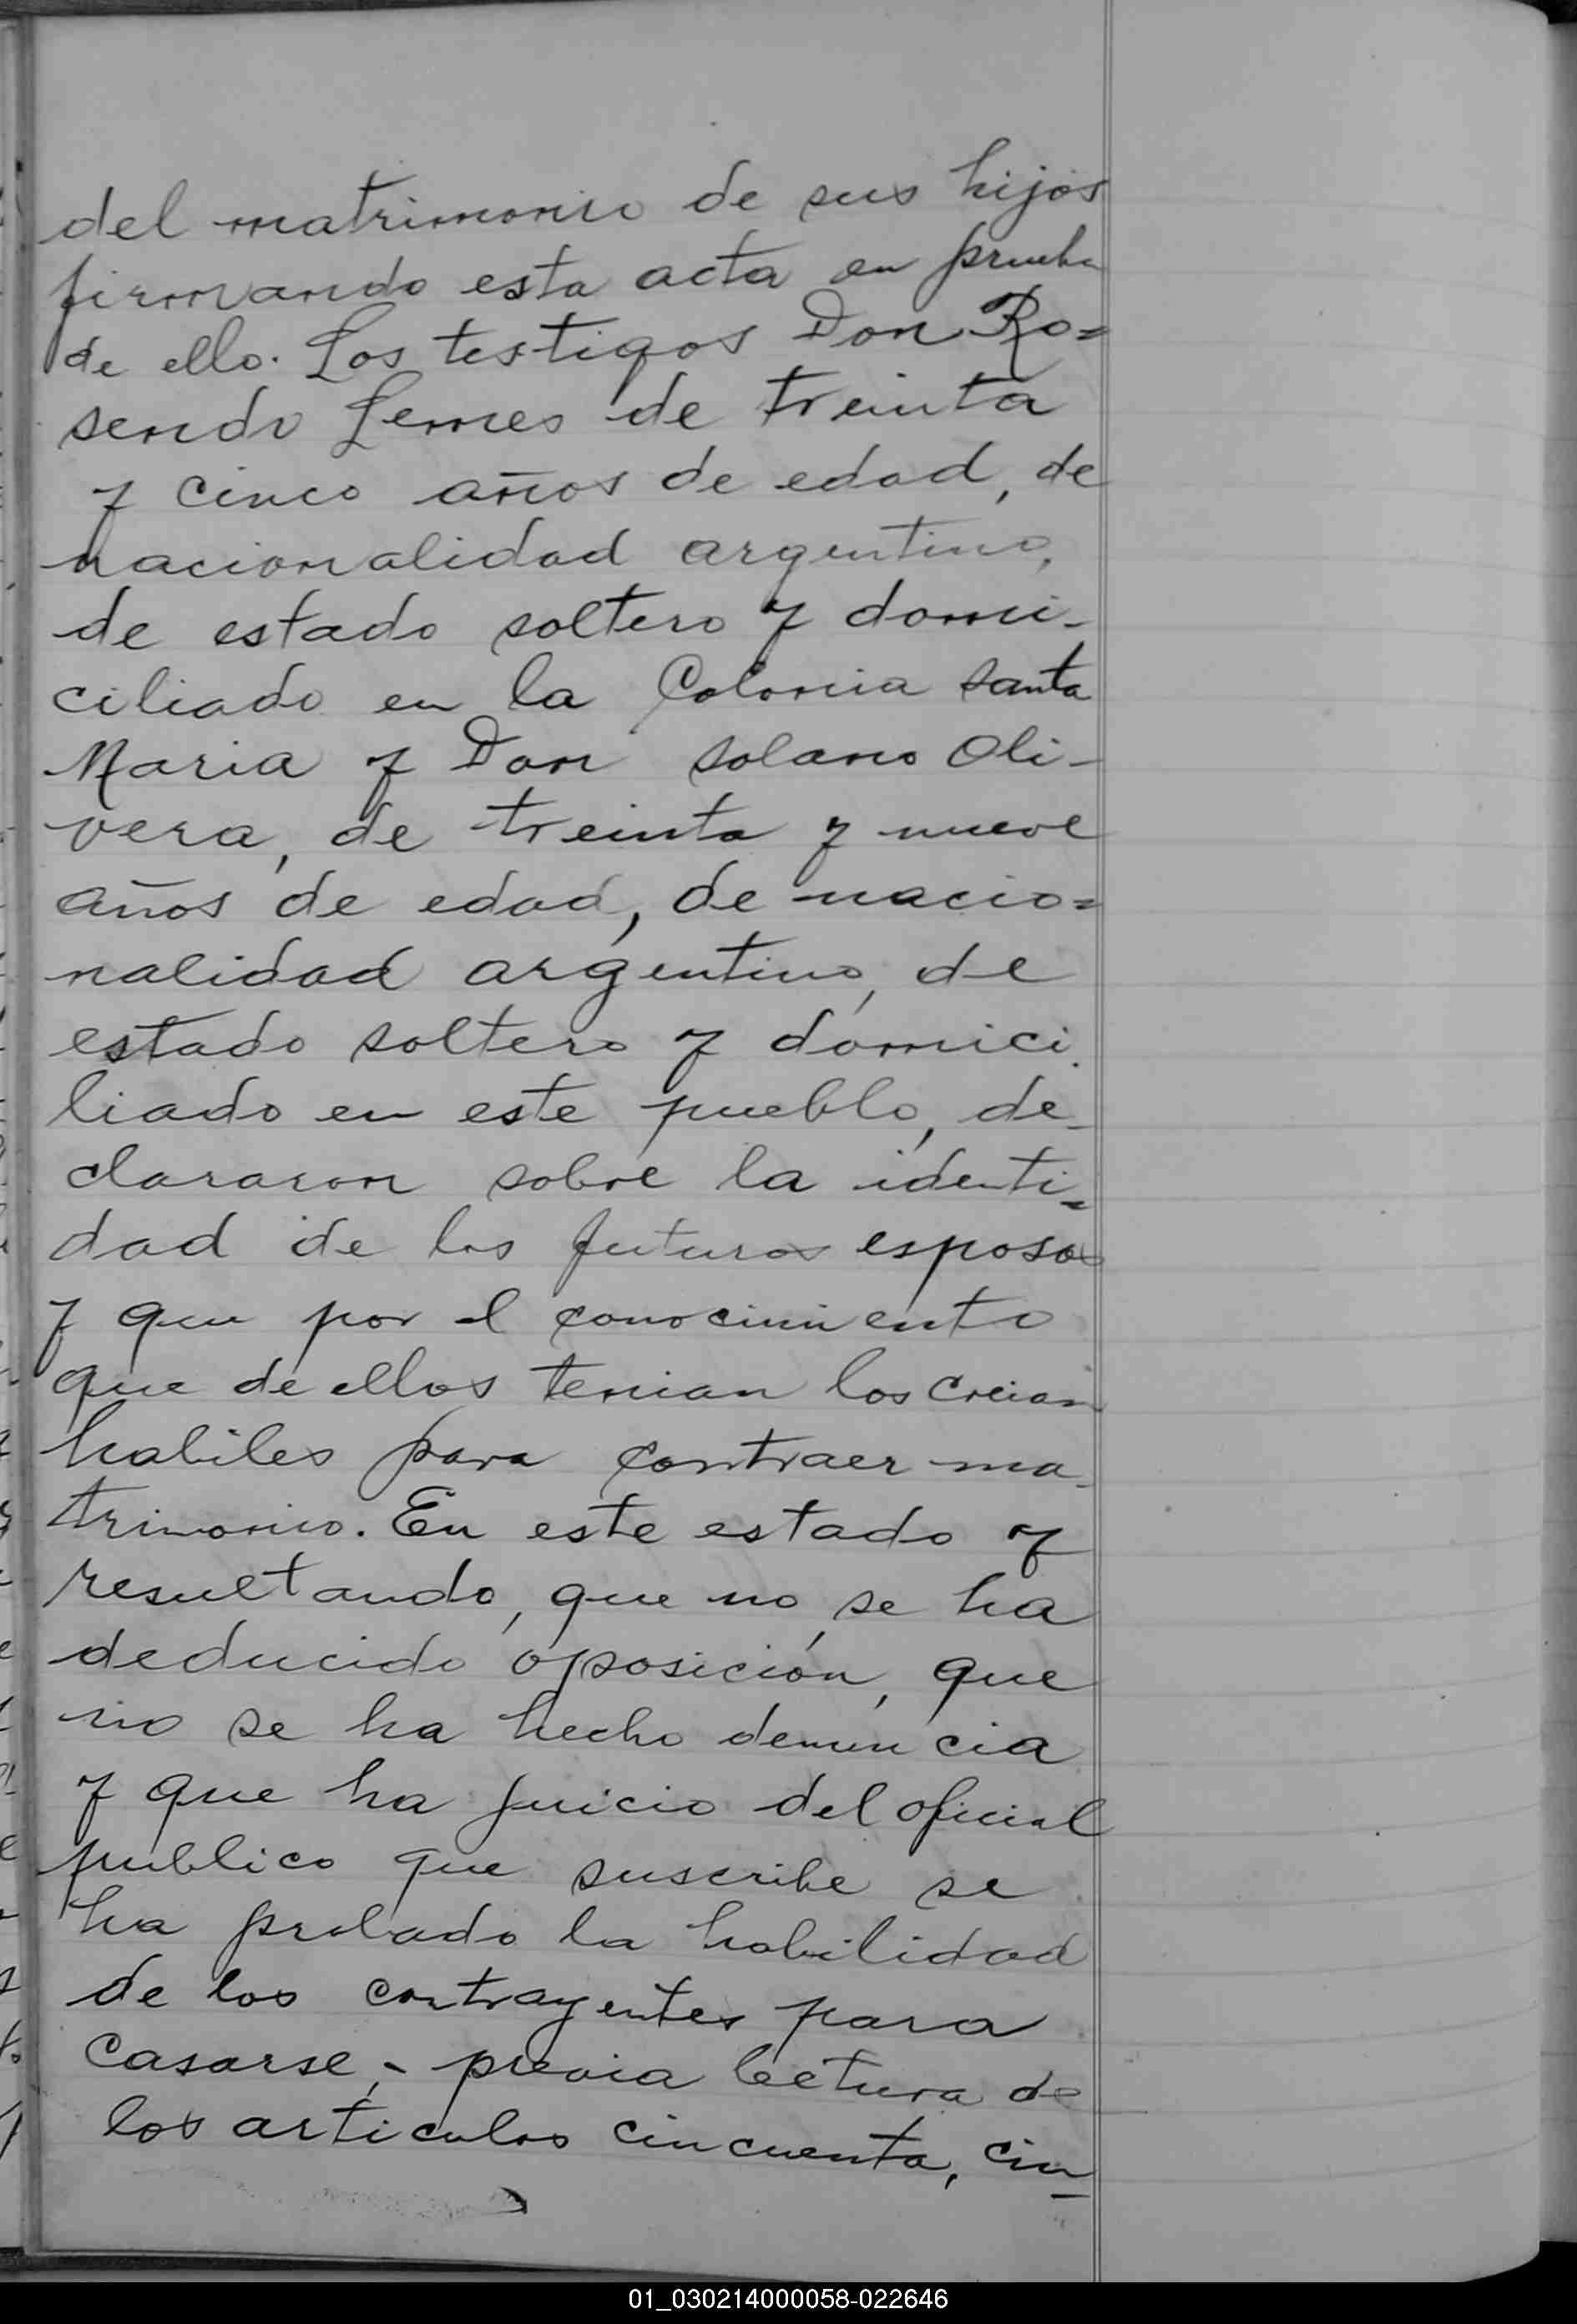 del matrimonio de sus hijos
firmando esta acta en prueba
de ello. Los testigos Don Ro=
sendo Lemes de treinta
y cinco años de edad, de
nacionalidad argentino,
de estado soltero y domi-
ciliado en la Colonia Santa
Maria y Don Solano Oli-
vera, de treinta y nueve
años de edad, de nacio=
nalidad argentino, de
estado soltero y domici
liado en este pueblo, de-
clararon sobre la identi=
dad de los futuros esposos
y que por el conocimiento
que de ellos tenian los creian
habiles para contraer ma-
trimonio. En este estado y
resultando, que no, se ha
deducido oposición, que
no se ha hecho denuncia
y que ha juicio del oficial
publico que suscribe se
ha probado la habilidad
de los contrayentes para
casarse, - previa lectura de
los articulos cincuenta, cin-
01_030214000058-022646